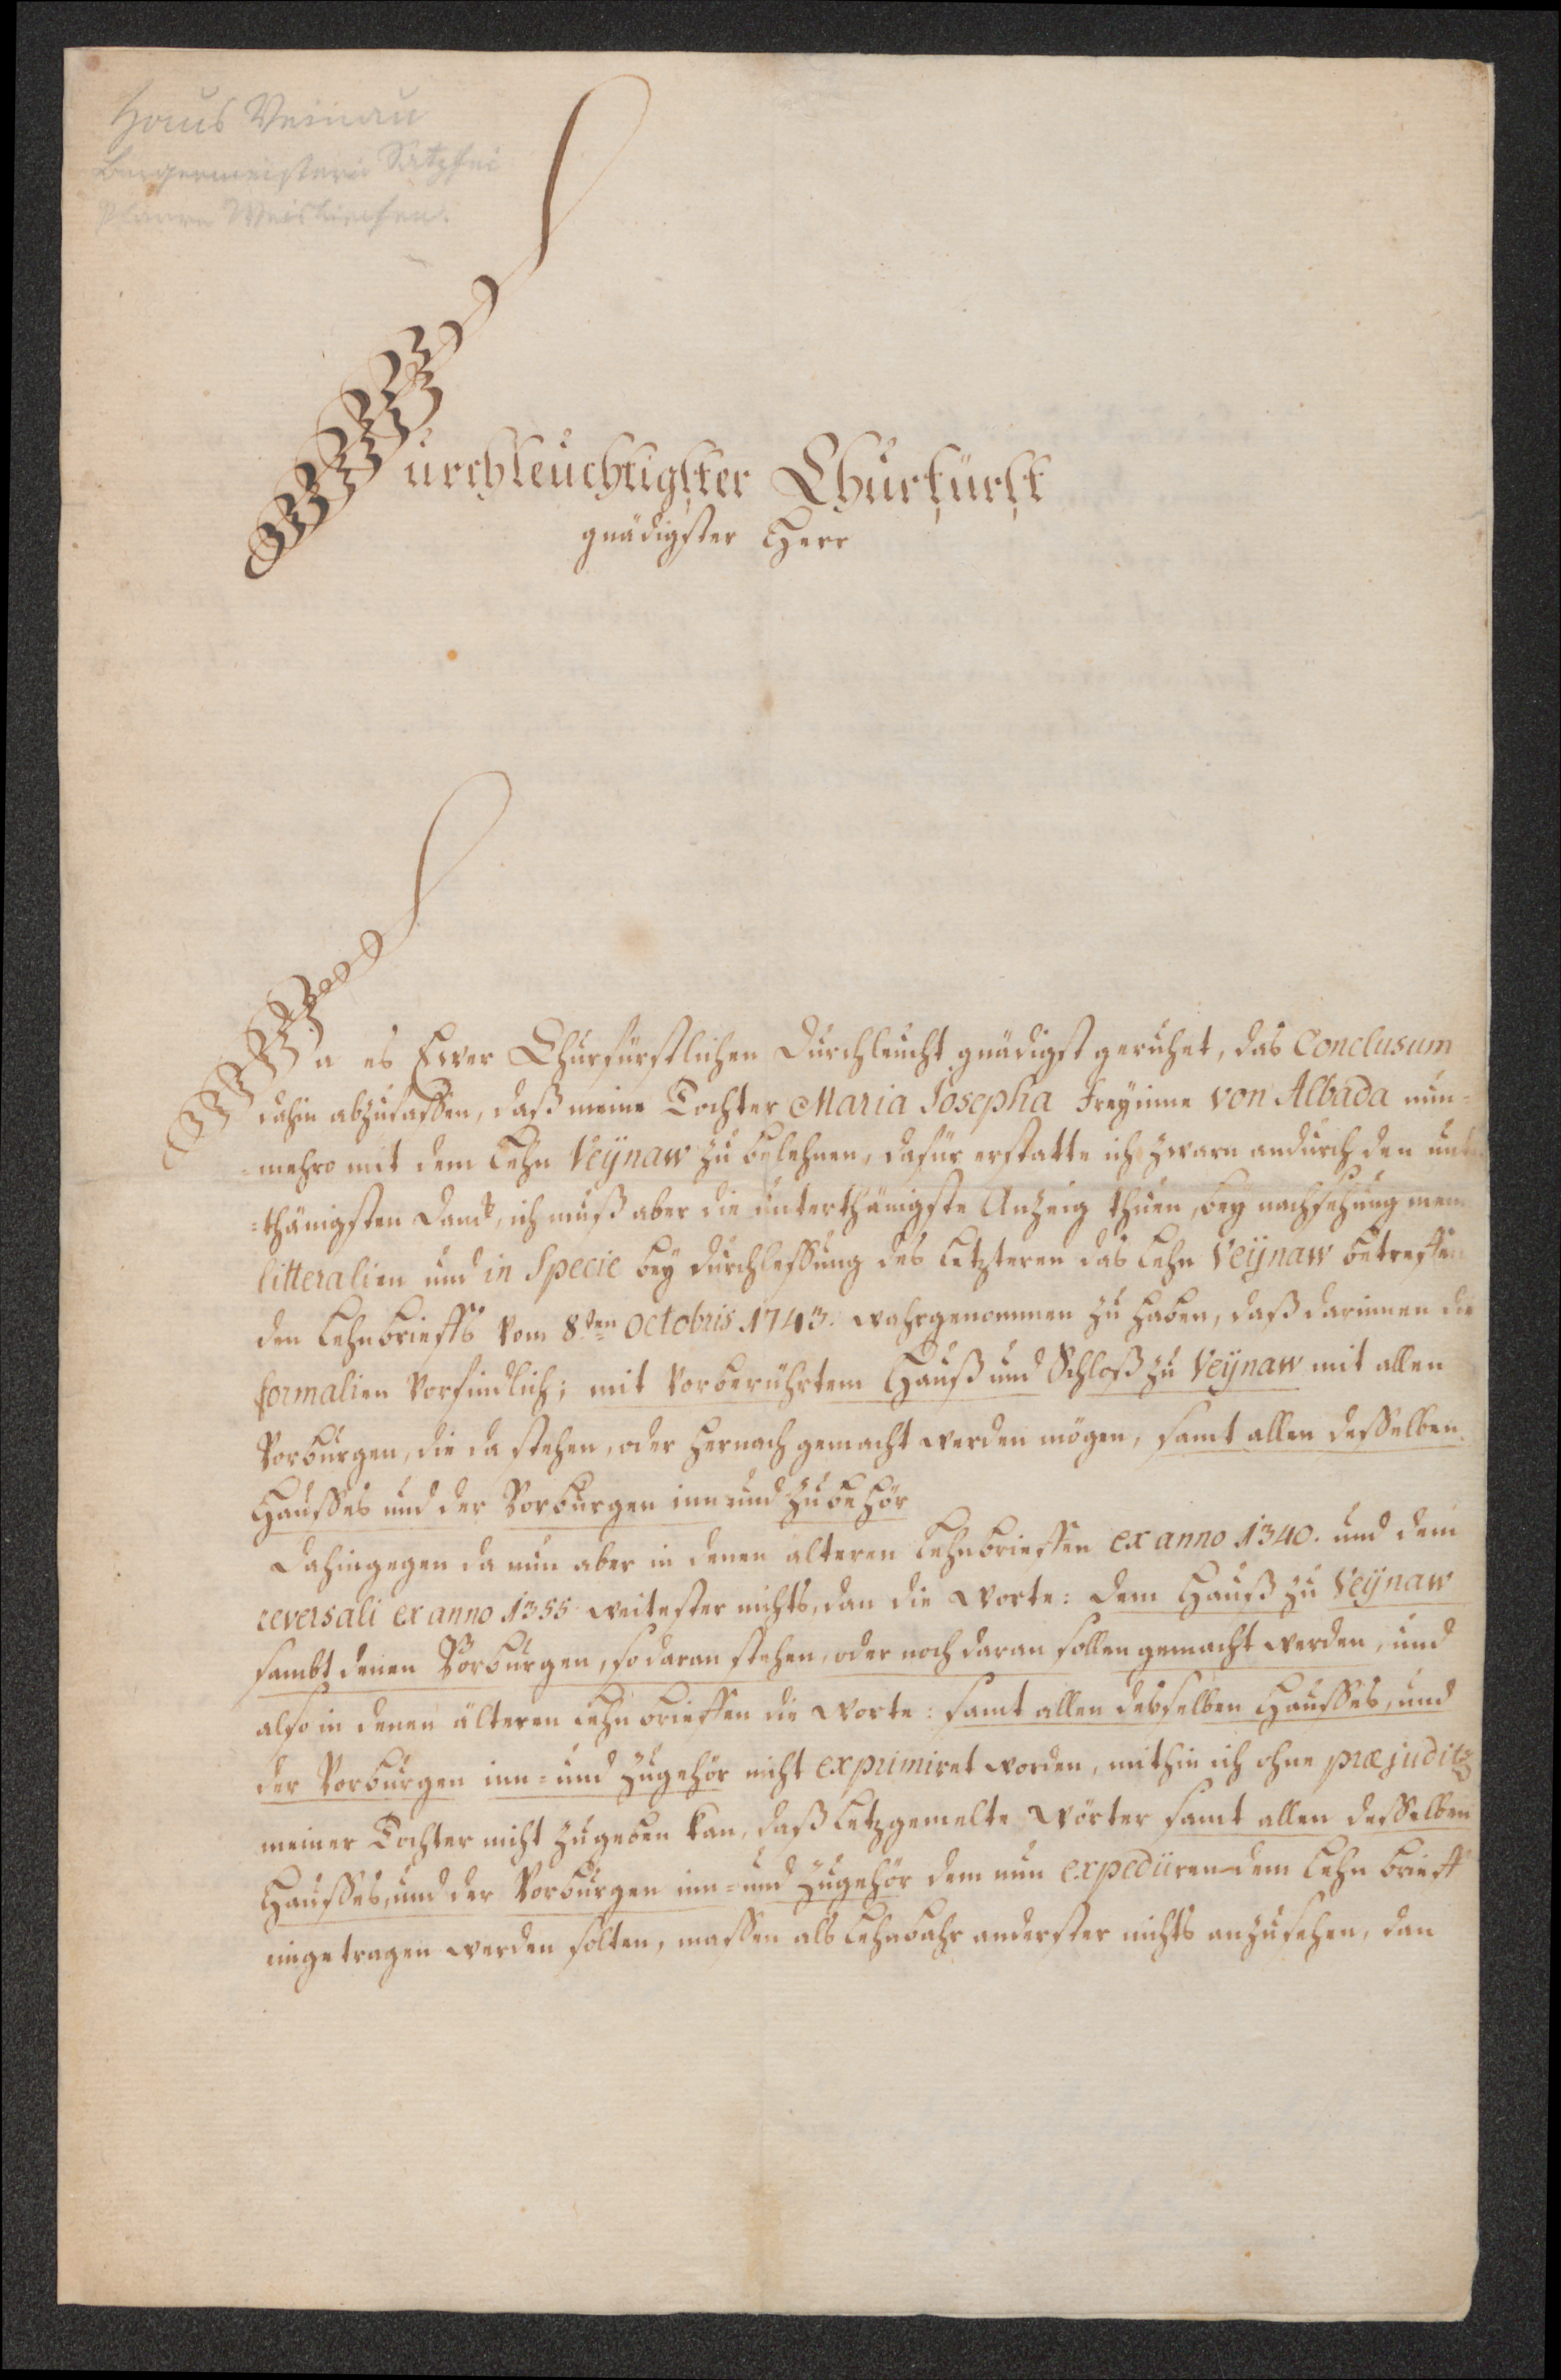 Haus Veinau
Burgermeisterei Satzfei
Pfarre Weiskirchen.
Durchleuchtigster Churfürst
gnädigster Herr
Da es Ewer Churfürstlichen Durchleucht gnädigst geruhet, das Conclusum
dahin abzufassen, daß meine Tochter Maria Josepha Freyinne von Albada nun=
=mehro mit dem Lehn Veÿnaw zu belehnen, dafür erstatte ich zwarn andurch den unter
=thänigsten Danck, ich muß aber die unterthänigste Anzeig thuen, bey nachsehung mein
litteralien und in Specie bey durchlessung des Letzteren das Lehn Veÿnaw betreffen
den Lehnbrieffs vom 8ten Octobris 1743. wahrgenommen zu haben, daß darinnen die
formalien vorfindlich; mit vorberührtem Hauß und Schloß zu Veÿnaw mit allen
Vorburgen, die da stehen, oder hernach gemacht werden mögen, samt allen desselben
Hausses und der Vorburgen inn und zubehör
Dahingegen da nun aber in denen älteren Lehnbrieffen ex anno 1340. und dem
reversali ex anno 1355 weitester nichts, dan die Worte: dem Hauß zu Veÿnaw
sambt denen Vorburgen, so daran stehen, oder noch daran sollen gemacht werden, und
also in denen älteren Lehnbrieffen die Worte: samt allen desselben Hausses, und
der Vorburgen inn= und zugehör nicht exprimiret worden, mithin ich ohne præjuditz
meiner Tochter nicht zugeben kan, daß Letzgemelte Wörter samt allen desselben
Hausses, und der Vorburgen inn= und zugehör dem nun expediirendem Lehn brieff
eingetragen werden solten, massen als Lehnbahr anderster nichts anzusehen, dan